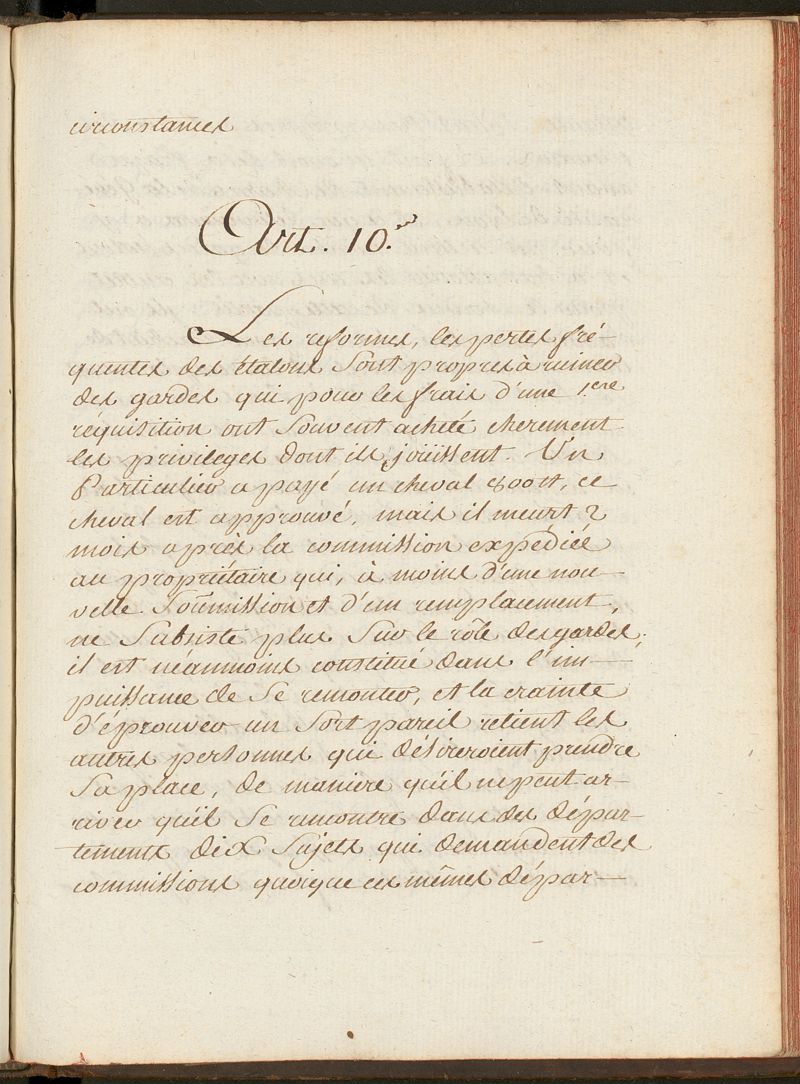 circonstances
Art. 10.e
Les reformes, les pertes fré-
quentes des étalons sont propres à ruiner
des gardes qui pour les frais d'une 1.ere
réquisition ont souvent acheté cherement
les privileges dont ils joüissent. Un
Particulier a payé un cheval 800tt, ce
cheval est approuvé, mais il meurt 2
mois après la commission expédiée
au propriétaire qui, à moins d'une nou-
velle soûmission et d'un remplacement,
ne subsiste plus sur le rôle des gardes;
il est néanmoins constitué dans l'im-
puissance de se remonter, et la crainte
d'éprouver un sort pareil retient les
autres personnes qui désireroient prendre
sa place, de maniere qu'il ne peut ar-
river qu'il se rencontre dans des dépar-
tements dix sujets qui demandent des
commissions quoique ces mêmes dépar-